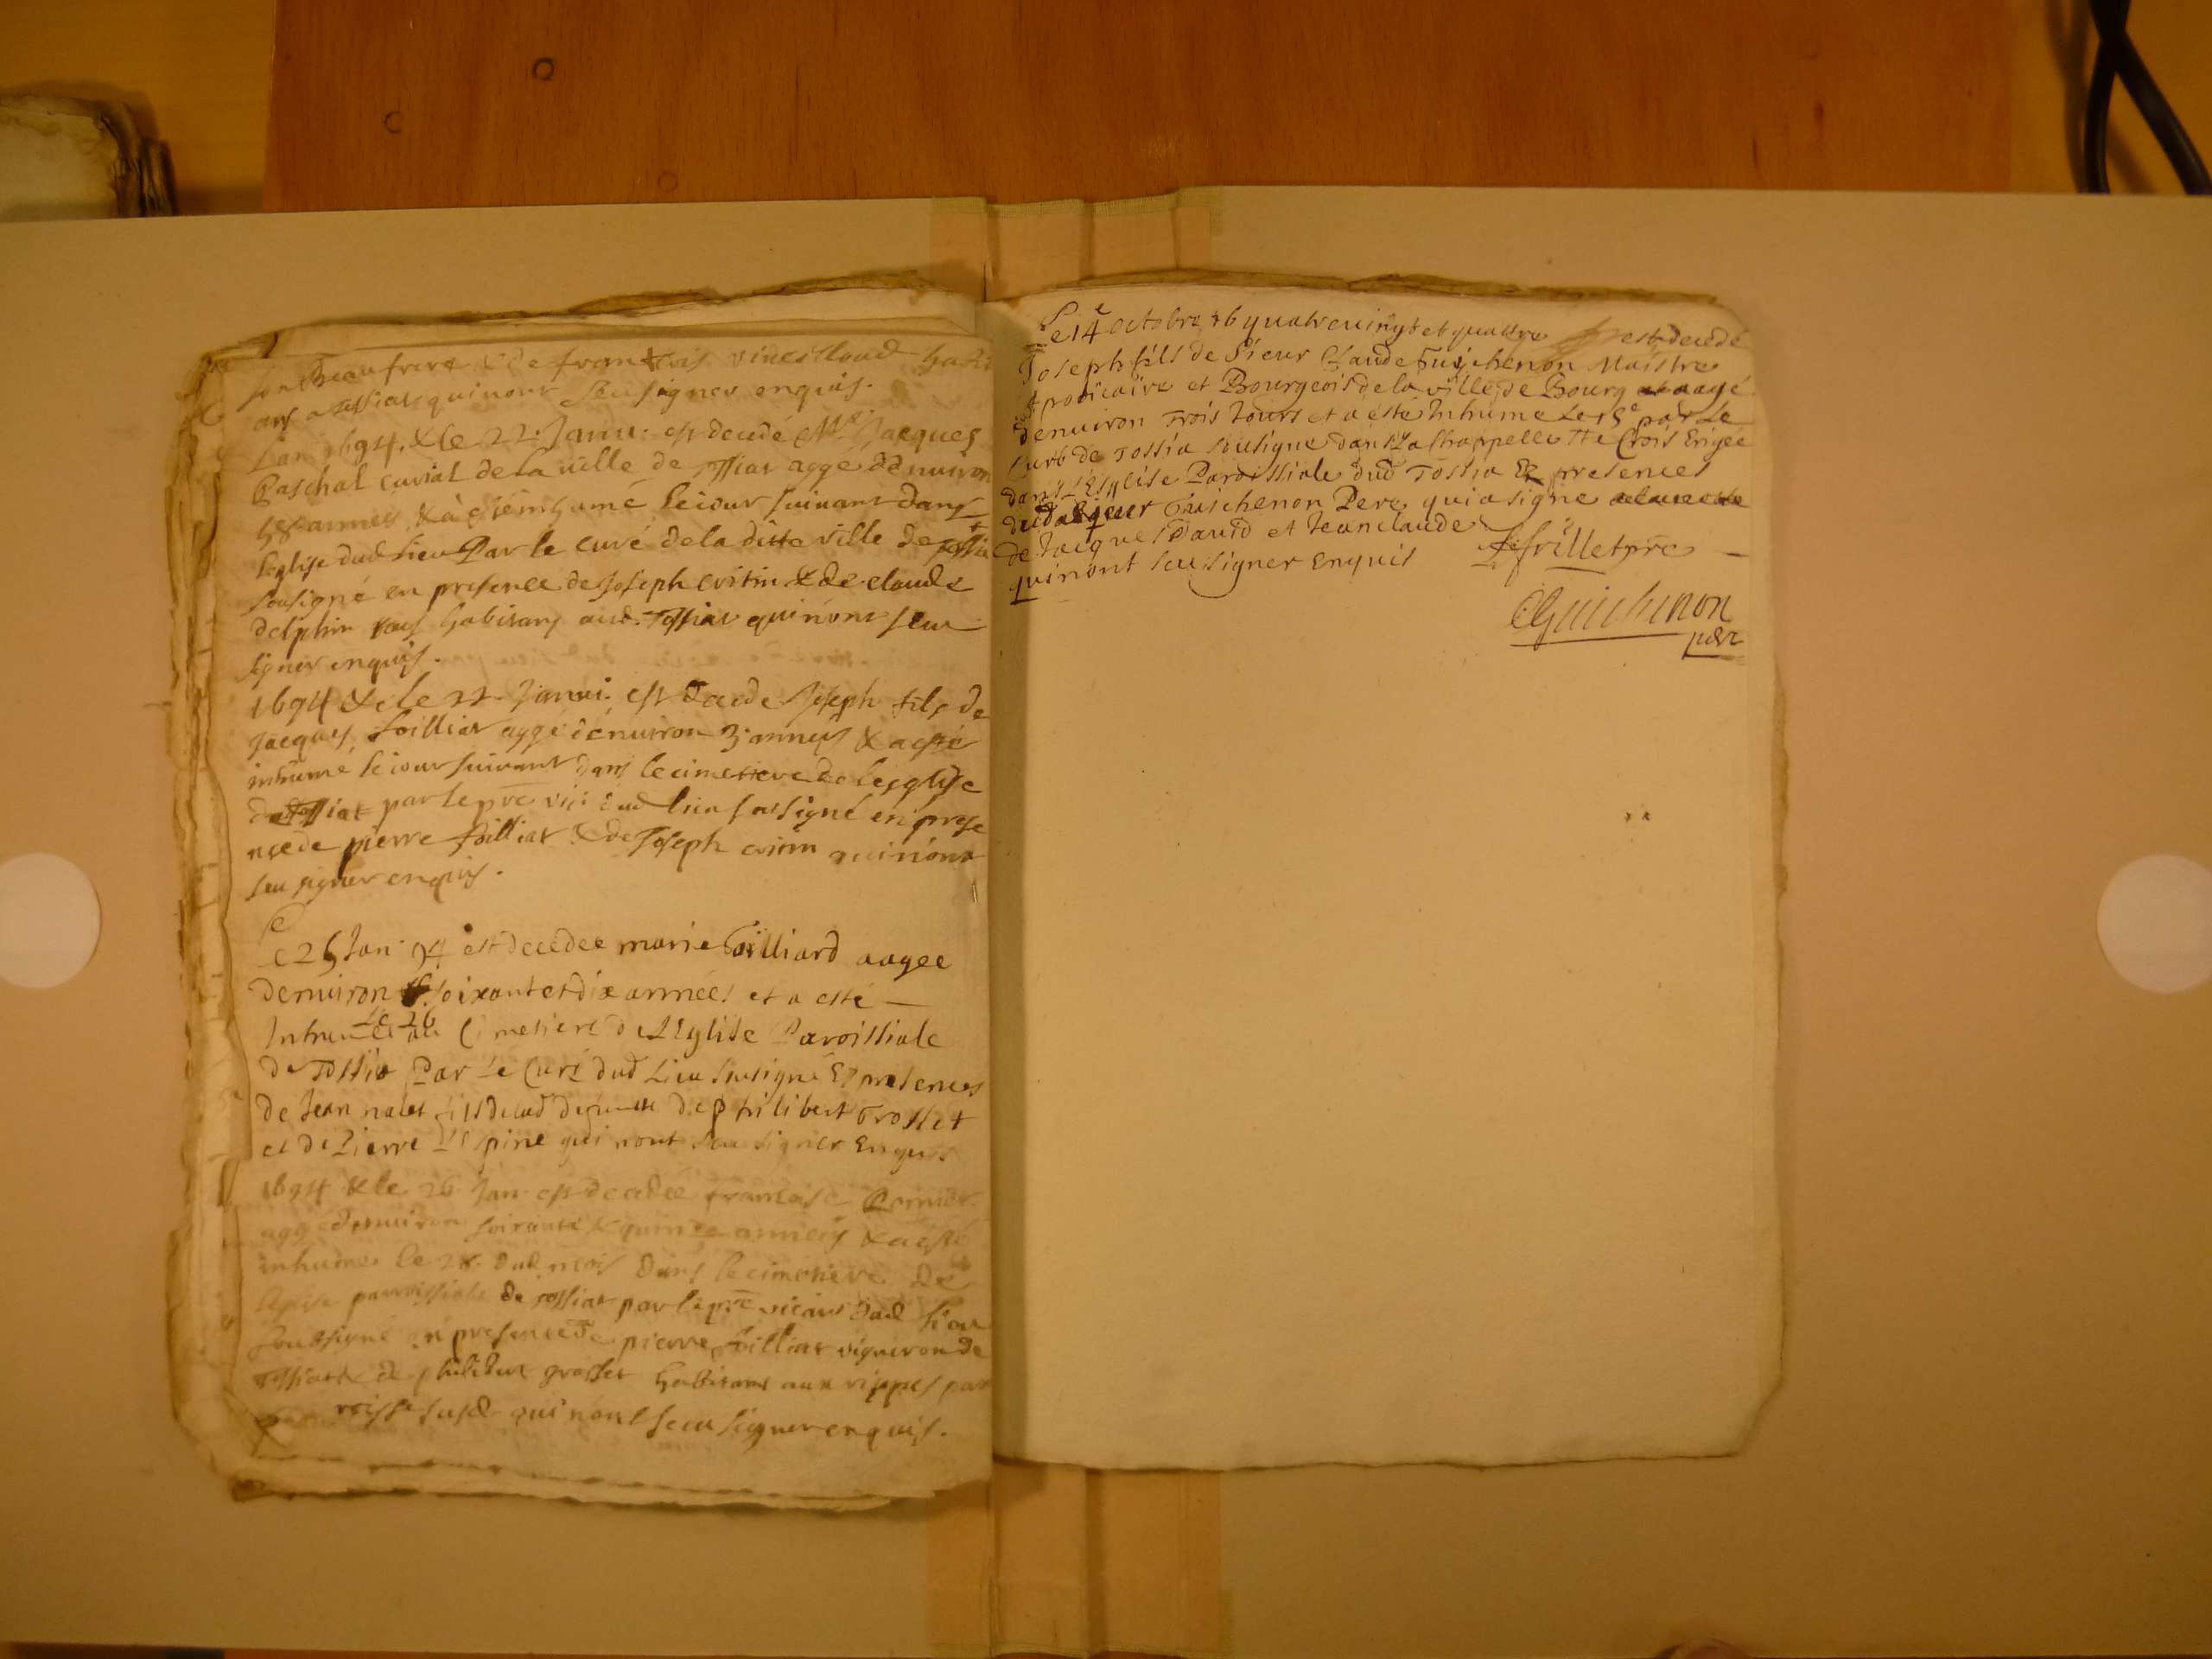 son Beaufrere & de francois vincesllaud habit
ans a tossiat qui nont seu signer enquis.
Lan 1694. & le 22. Janu. est decedé Mre Jacques
Paschal curial de la ville de tossiat aggé denuiron
58 annees & à esté inhumé le iour suiuant dans
leglise dud lieu Par le curé de la ditte ville de tossia
sousigné en presence de Joseph cristin & de claude
delphin tous habitans aud. Tossiat qui nont seu
signer enquis.
1694 & le 22. Janui. est decede Joseph fils de
Jacques foilliat aggé denuiron 3. annees & a esté
inhumé le iour suiuant dans le cimetiere de lesglise
de tossiat par le pre vic. dud lieu sousigné en prese
nce de pierre foilliat & de Joseph qui nont
seu signer enquis.
Le 25 Jan. 94 est decedee marie foilliard aagee
denuiron soixante et dix années et a esté
Inhumée le 26 au Cimetiere de L'Eglise Paroissiale
de Tossia Par Le Curé dud Lieu sousigné Es presences
de Jean nalet fils de lad defunte de philibert Grosset
et de Pierre L'Espine qui nont seu signer Enquis
1694 & le 26 Jan. est decedée francoise
aggé denuiron soixante & quinze annees & a esté
inhumee le 28. dud mois dans le cimetiere de
leglise parroissiale de tossiat par le pre vicaire dud lieu
soussigné en presence de pierre foilliat vigneron de
tossiat & de philibert grosset habitans aux rippes par
roisse susd. qui nont seeu signer enquis.
Le 14e octobre 16 quatre uingt et quattre est decedé
Joseph fils de Sieur Claude Guichenon Maistre
Apoticaire et Bourgeois de la ville de Bourg aagé
denuiron Trois Jours et a esté Inhumé Le 15e par Le
Curé de Tossia sousigné dans La Chappelle Ste Crois Erigée
dans L'Esglise Paroissiale dud Tossia Es presences
dud sieur Guischenon Pere qui a signé
de Jacques David et Jean claude
qui nont seu signer Enquis
Lefrilletpre
CGuichenon
pere